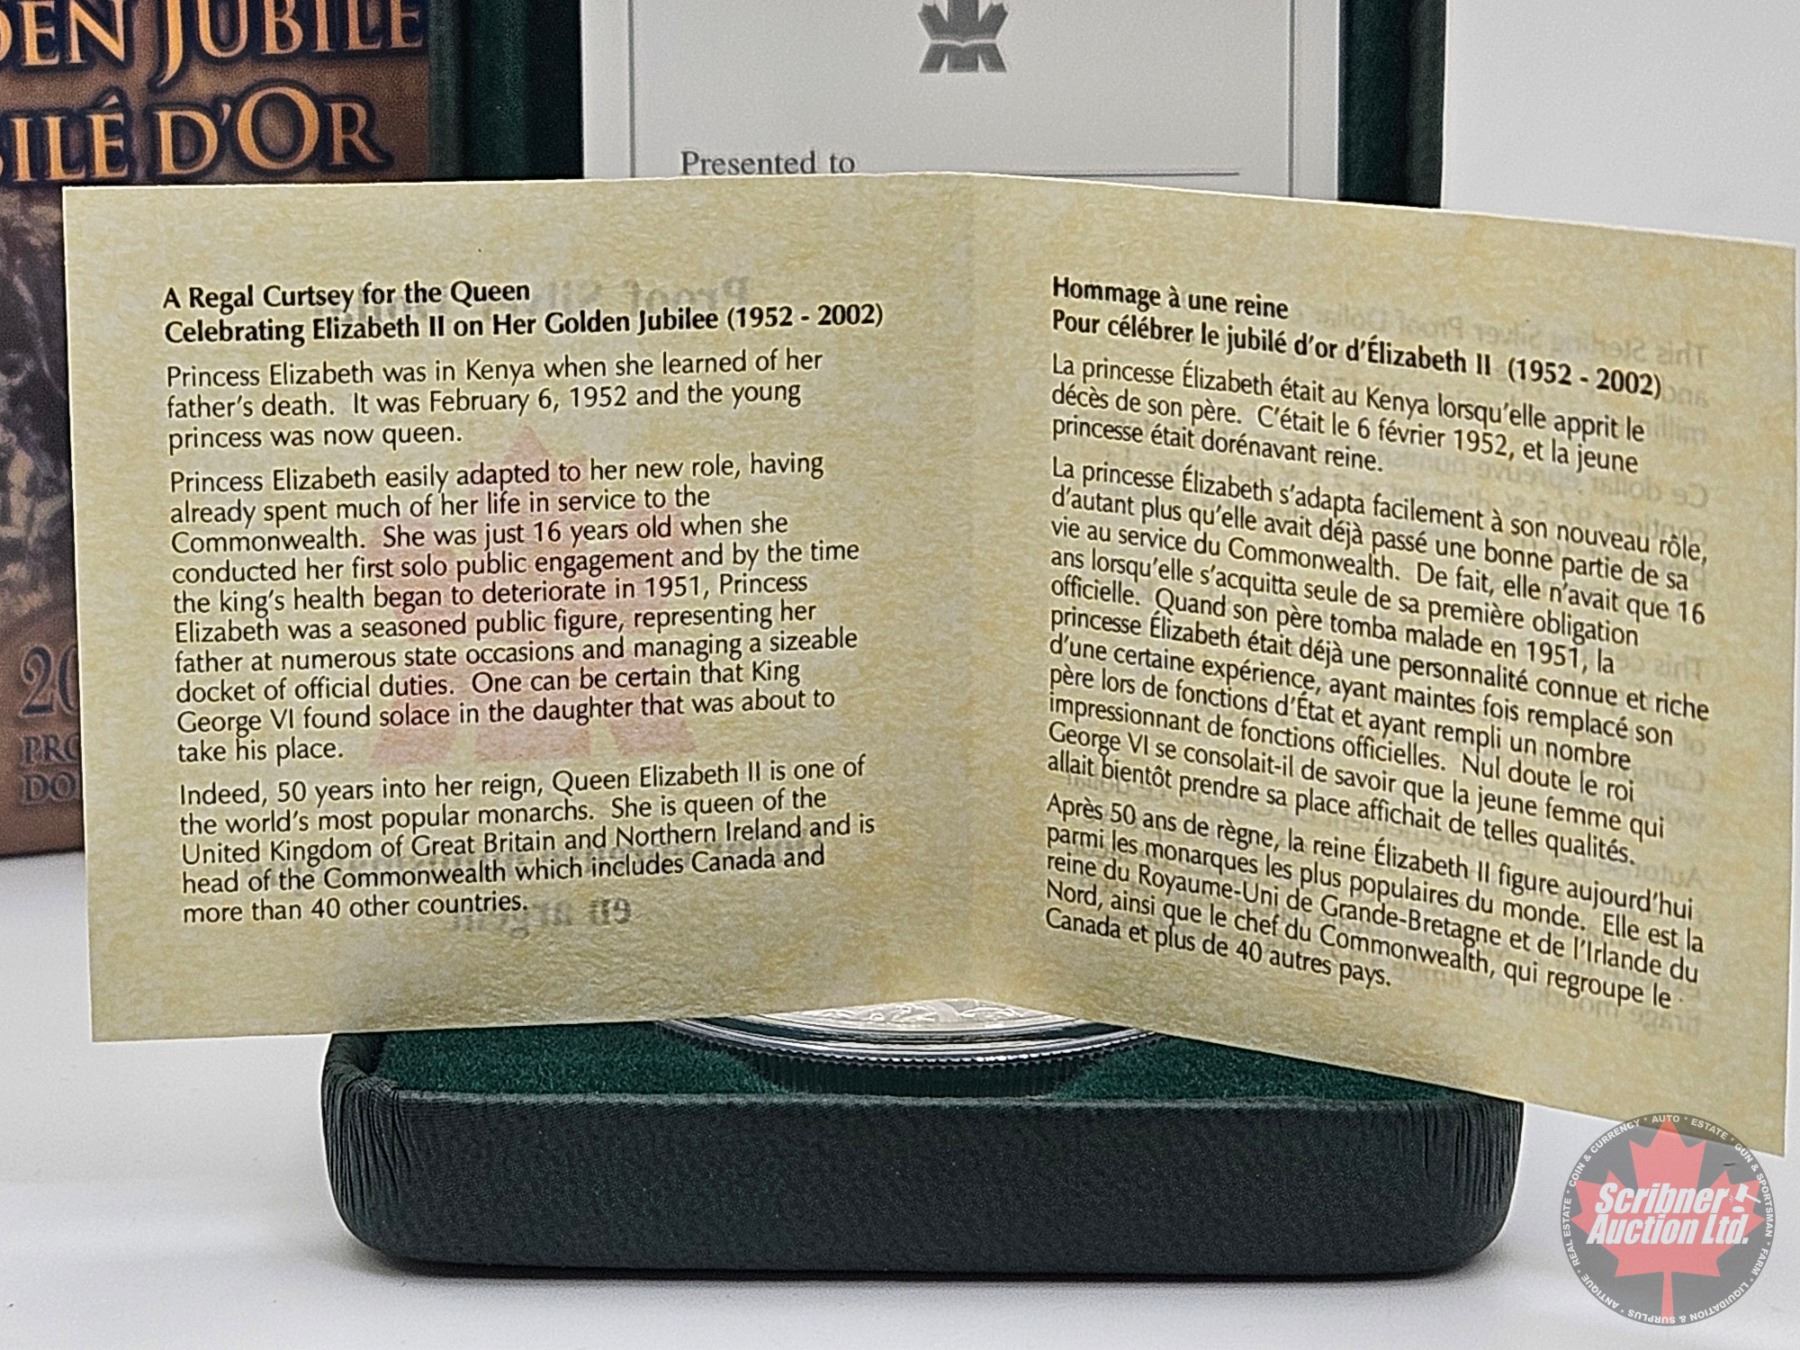 DEN JUBILE
BILÉ D'OR
Presented to
A Regal Curtsey for the Queen
Celebrating Elizabeth II on Her Golden Jubilee (1952 - 2002)
Princess Elizabeth was in Kenya when she learned of her
father's death. It was February 6, 1952 and the young
princess was now queen.
Princess Elizabeth easily adapted to her new role, having
already spent much of her life in service to the
Commonwealth. She was just 16 years old when she
conducted her first solo public engagement and by the time
the king's health began to deteriorate in 1951, Princess
Elizabeth was a seasoned public figure, representing her
father at numerous state occasions and managing a sizeable
docket of official duties. One can be certain that King
George VI found solace in the daughter that was about to
take his place.
Indeed, 50 years into her reign, Queen Elizabeth II is one of
the world's most popular monarchs. She is queen of the
United Kingdom of Great Britain and Northern Ireland and is
head of the Commonwealth which includes Canada and
more than 40 other countries.
Hommage à une reine
Pour célébrer le jubilé d'or d'Élizabeth II (1952 - 2002)
La princesse Élizabeth était au Kenya lorsqu'elle apprit le
décès de son père. C'était le 6 février 1952, et la jeune
princesse était dorénavant reine.
La princesse Élizabeth s'adapta facilement à son nouveau rôle,
d'autant plus qu'elle avait déjà passé une bonne partie de sa
vie au service du Commonwealth. De fait, elle n'avait que 16
ans lorsqu'elle s'acquitta seule de sa première obligation
officielle. Quand son père tomba malade en 1951, la
princesse Élizabeth était déjà une personnalité connue et riche
d'une certaine expérience, ayant maintes fois remplacé son
père lors de fonctions d'État et ayant rempli un nombre
impressionnant de fonctions officielles. Nul doute le roi
George VI se consolait-il de savoir que la jeune femme qui
allait bientôt prendre sa place affichait de telles qualités.
Après 50 ans de règne, la reine Élizabeth II figure aujourd'hui
parmi les monarques les plus populaires du monde. Elle est la
reine du Royaume-Uni de Grande-Bretagne et de l'Irlande du
Nord, ainsi que le chef du Commonwealth, qui regroupe le
Canada et plus de 40 autres pays.
20
PRO
DO
Scribner
Auction Ltd.
ANTIQUE · REAL ESTATE · COIN & CURRENCY · AUTO · ESTATE · GUN & SPORTSMAN · FARM · LIQUIDATION & SURPLUS